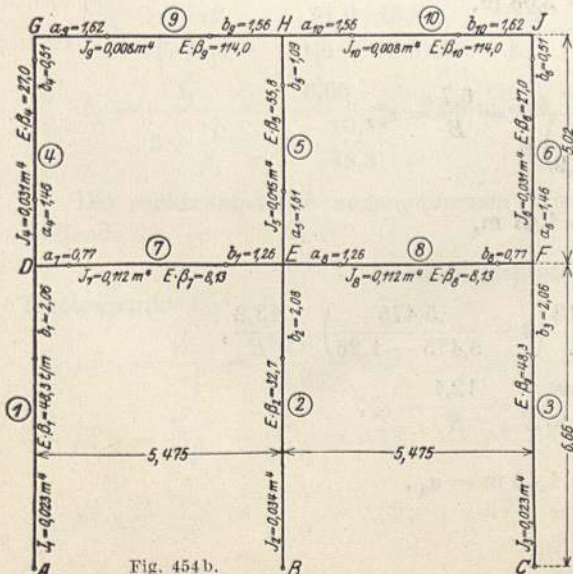 G a₉=1,62 ⑨ b₉=1,56 H a₁₀=1,56 ⑩ b₁₀=1,62 J
J₉=0,008m⁴ E·β₉=114,0 J₁₀=0,008m⁴ E·β₁₀=114,0
b₄=0,51
E·β₄=27,0
④
J₄=0,031m⁴
a₄=1,46
b₅=1,09
E·β₅=55,8
⑤
J₅=0,015m⁴
a₅=1,01
b₆=0,51
E·β₆=27,0
⑥
J₆=0,031m⁴
a₆=1,46
5,02
D a₇=0,77 ⑦ b₇=1,26 E a₈=1,26 ⑧ b₈=0,77 F
J₇=0,112m⁴ E·β₇=8,13 J₈=0,112m⁴ E·β₈=8,13
b₁=2,06
E·β₁=48,3 t/m
①
J₁=0,023m⁴
b₂=2,08
E·β₂=32,7
②
J₂=0,034m⁴
b₃=2,06
E·β₃=48,3
③
J₃=0,023m⁴
6,66
5,475 5,475
A Fig. 454b. B C